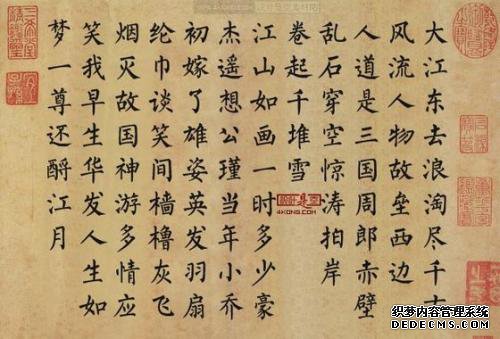 大江东去浪淘尽千古
风流人物故垒西边
人道是三国周郎赤壁
乱石穿空惊涛拍岸
卷起千堆雪
江山如画一时多少豪
杰遥想公瑾当年小乔
初嫁了雄姿英发羽扇
纶巾谈笑间樯橹灰飞
烟灭故国神游多情应
笑我早生华发人生如
梦一尊还酹江月
4KONG.COM
织梦内容管理系统
DEDECMS.COM